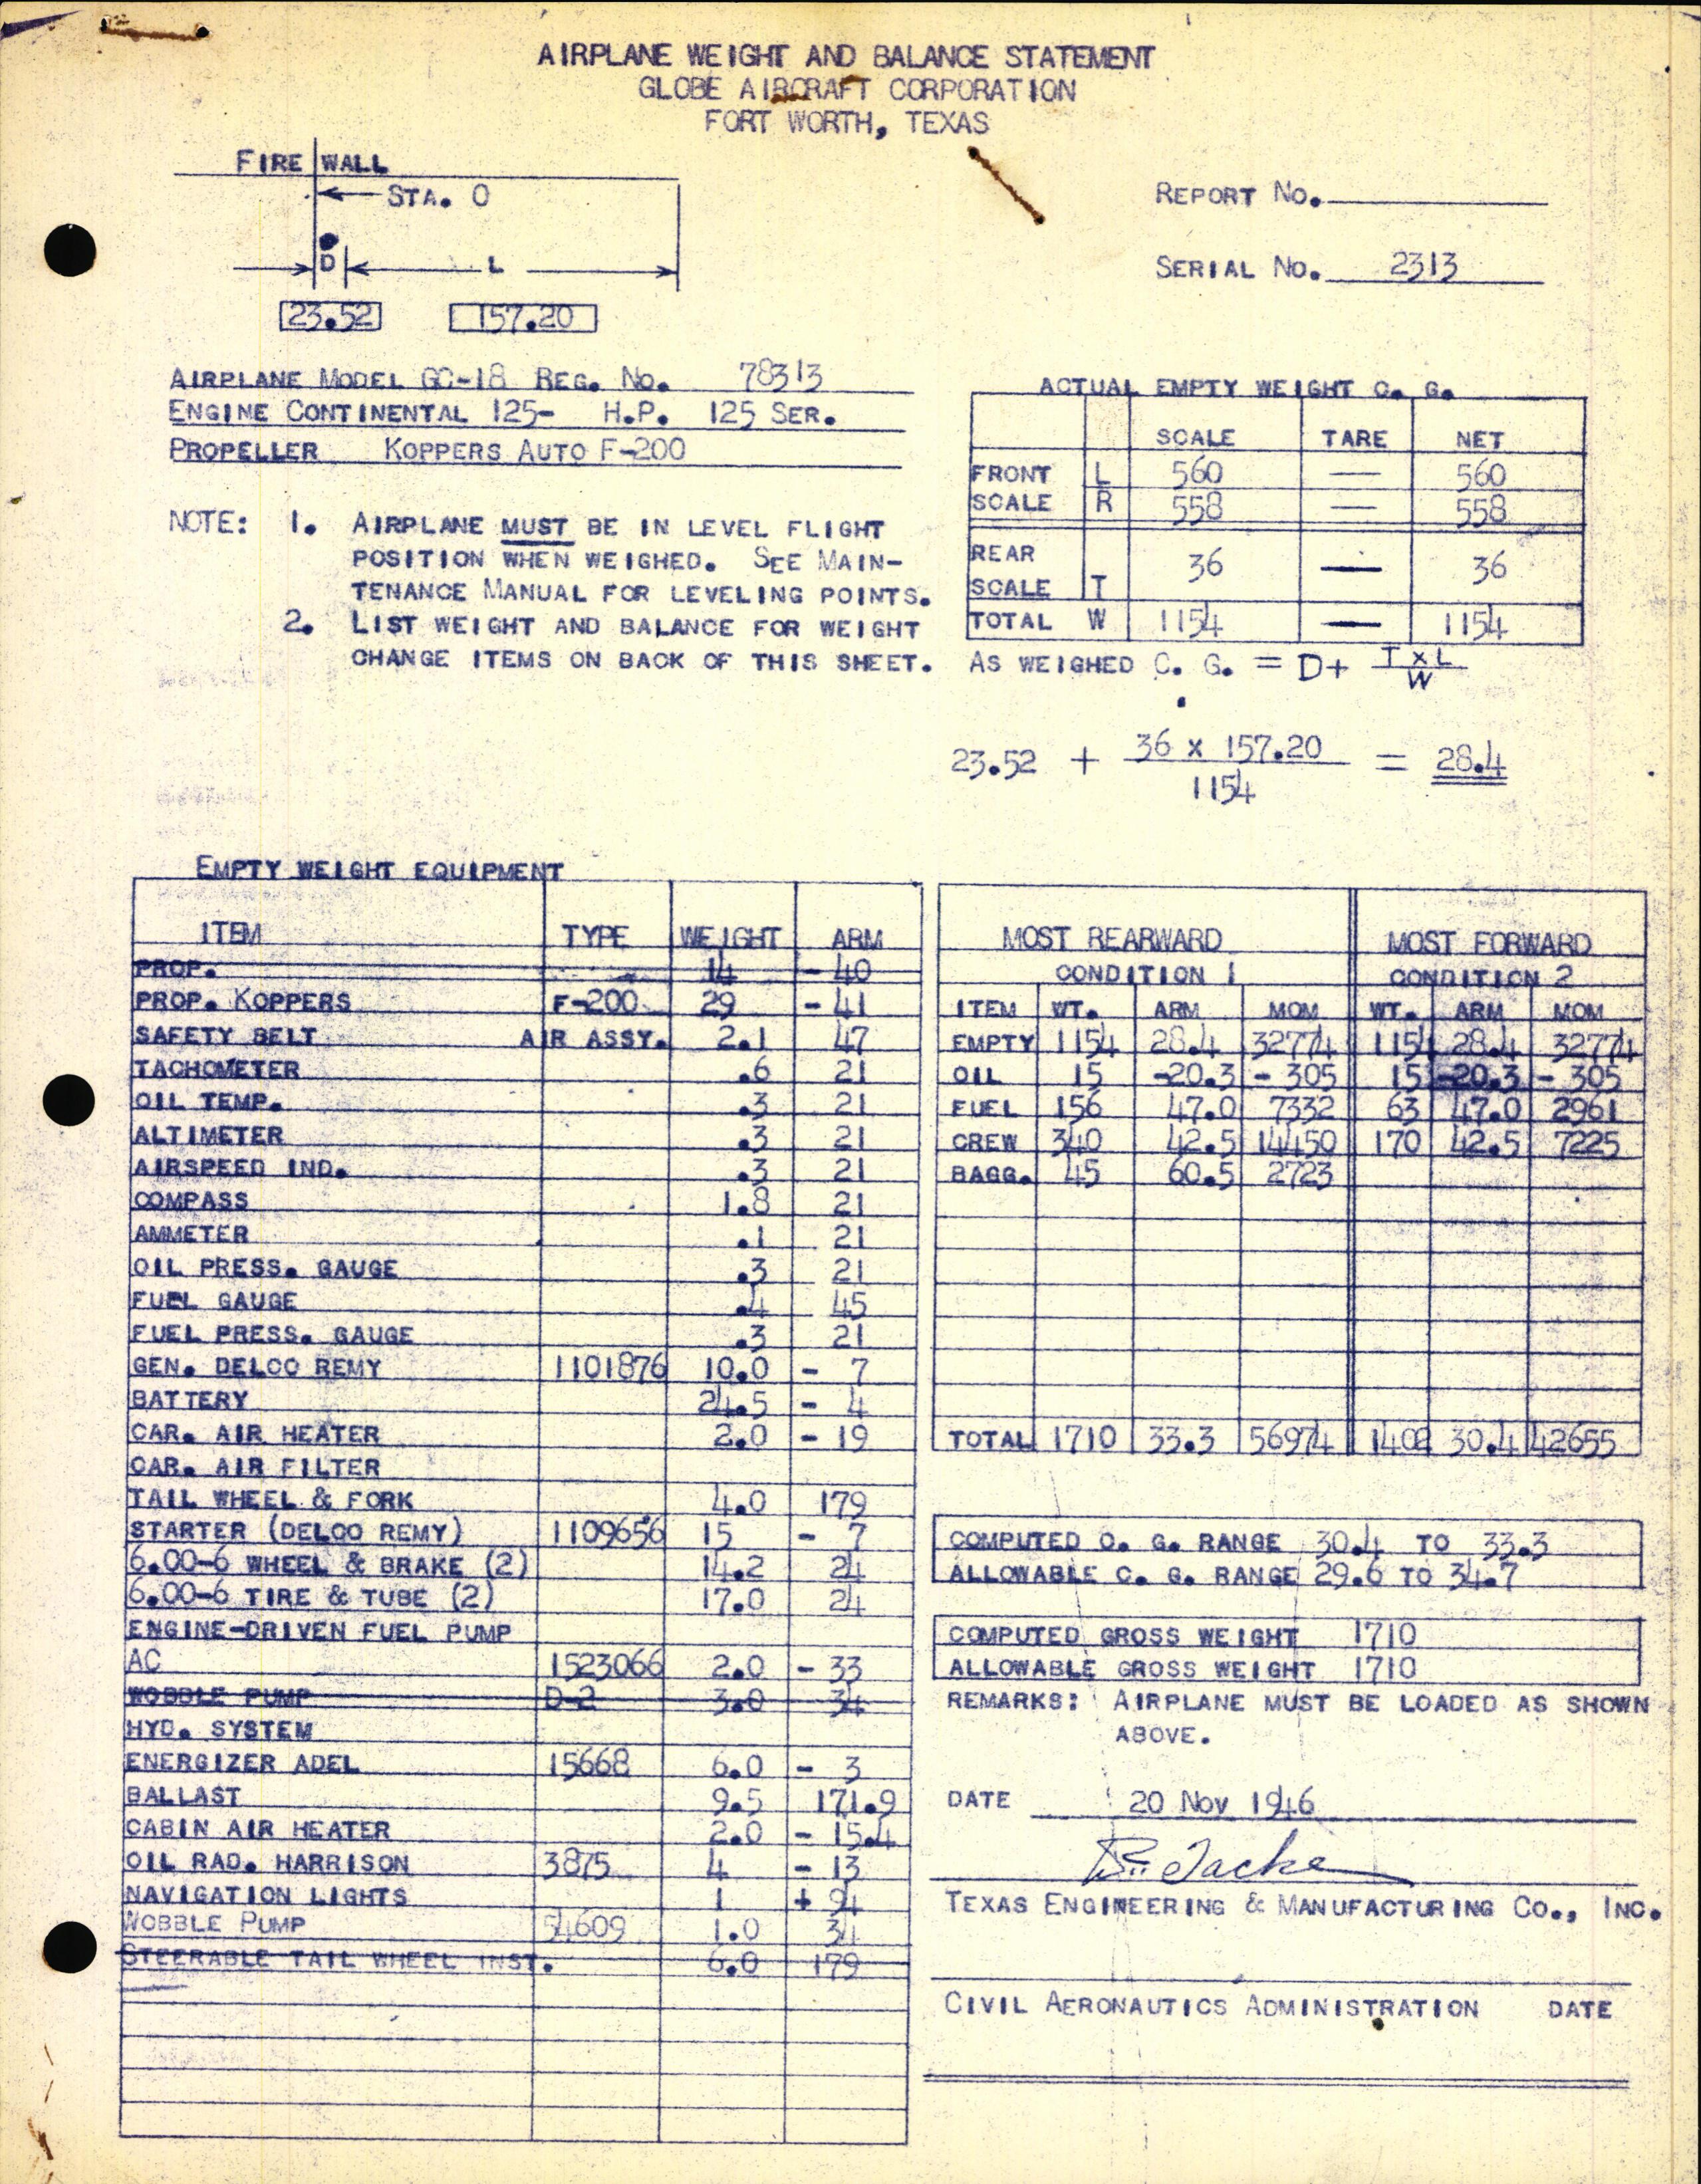 AIRPLANE WEIGHT AND BALANCE STATEMENT
GLOBE AIRCRAFT CORPORATION
FORT WORTH, TEXAS
FIRE WALL
STA. O
D L
23.52 157.20
REPORT NO.
SERIAL NO. 2313
AIRPLANE MODEL GC-1B REG. NO. 78313
ENGINE CONTINENTAL 125- H.P. 125 SER.
PROPELLER KOPPERS AUTO F-200
NOTE: 1. AIRPLANE MUST BE IN LEVEL FLIGHT
POSITION WHEN WEIGHED. SEE MAIN-
TENANCE MANUAL FOR LEVELING POINTS.
2. LIST WEIGHT AND BALANCE FOR WEIGHT
CHANGE ITEMS ON BACK OF THIS SHEET.
ACTUAL EMPTY WEIGHT C. G.
SCALE TARE NET
FRONT L 560 — 560
SCALE R 558 — 558
REAR
SCALE T 36 — 36
TOTAL W 1154 — 1154
AS WEIGHED C. G. = D+ T x L
W
23.52 + 36 x 157.20 = 28.4
1154
EMPTY WEIGHT EQUIPMENT
ITEM TYPE WEIGHT ARM
PROP. 14 - 40
PROP. KOPPERS F-200 29 - 41
SAFETY BELT AIR ASSY. 2.1 47
TACHOMETER .6 21
OIL TEMP. .3 21
ALTIMETER .3 21
AIRSPEED IND. .3 21
COMPASS 1.8 21
AMMETER .1 21
OIL PRESS. GAUGE .3 21
FUEL GAUGE .4 45
FUEL PRESS. GAUGE .3 21
GEN. DELCO REMY 1101876 10.0 - 7
BATTERY 24.5 - 4
CAR. AIR HEATER 2.0 - 19
CAR. AIR FILTER
TAIL WHEEL & FORK 4.0 179
STARTER (DELCO REMY) 1109656 15 - 7
6.00-6 WHEEL & BRAKE (2) 14.2 24
6.00-6 TIRE & TUBE (2) 17.0 24
ENGINE-DRIVEN FUEL PUMP
AC 1523066 2.0 - 33
WOBBLE PUMP D-2 3.0 34
HYD. SYSTEM
ENERGIZER ADEL 15668 6.0 - 3
BALLAST 9.5 171.9
CABIN AIR HEATER 2.0 - 15.4
OIL RAD. HARRISON 3875 4 - 13
NAVIGATION LIGHTS 1 + 94
WOBBLE PUMP 54609 1.0 34
STEERABLE TAIL WHEEL INST. 6.0 179
MOST REARWARD MOST FORWARD
CONDITION 1 CONDITION 2
ITEM WT. ARM MOM WT. ARM MOM
EMPTY 1154 28.4 32774 1154 28.4 32774
OIL 15 -20.3 - 305 15 -20.3 - 305
FUEL 156 47.0 7332 63 47.0 2961
CREW 340 42.5 14450 170 42.5 7225
BAGG. 45 60.5 2723
TOTAL 1710 33.3 56974 1402 30.4 42655
COMPUTED C. G. RANGE 30.4 TO 33.3
ALLOWABLE C. G. RANGE 29.6 TO 34.7
COMPUTED GROSS WEIGHT 1710
ALLOWABLE GROSS WEIGHT 1710
REMARKS: AIRPLANE MUST BE LOADED AS SHOWN
ABOVE.
DATE 20 Nov 1946
TEXAS ENGINEERING & MANUFACTURING CO., INC.
CIVIL AERONAUTICS ADMINISTRATION DATE